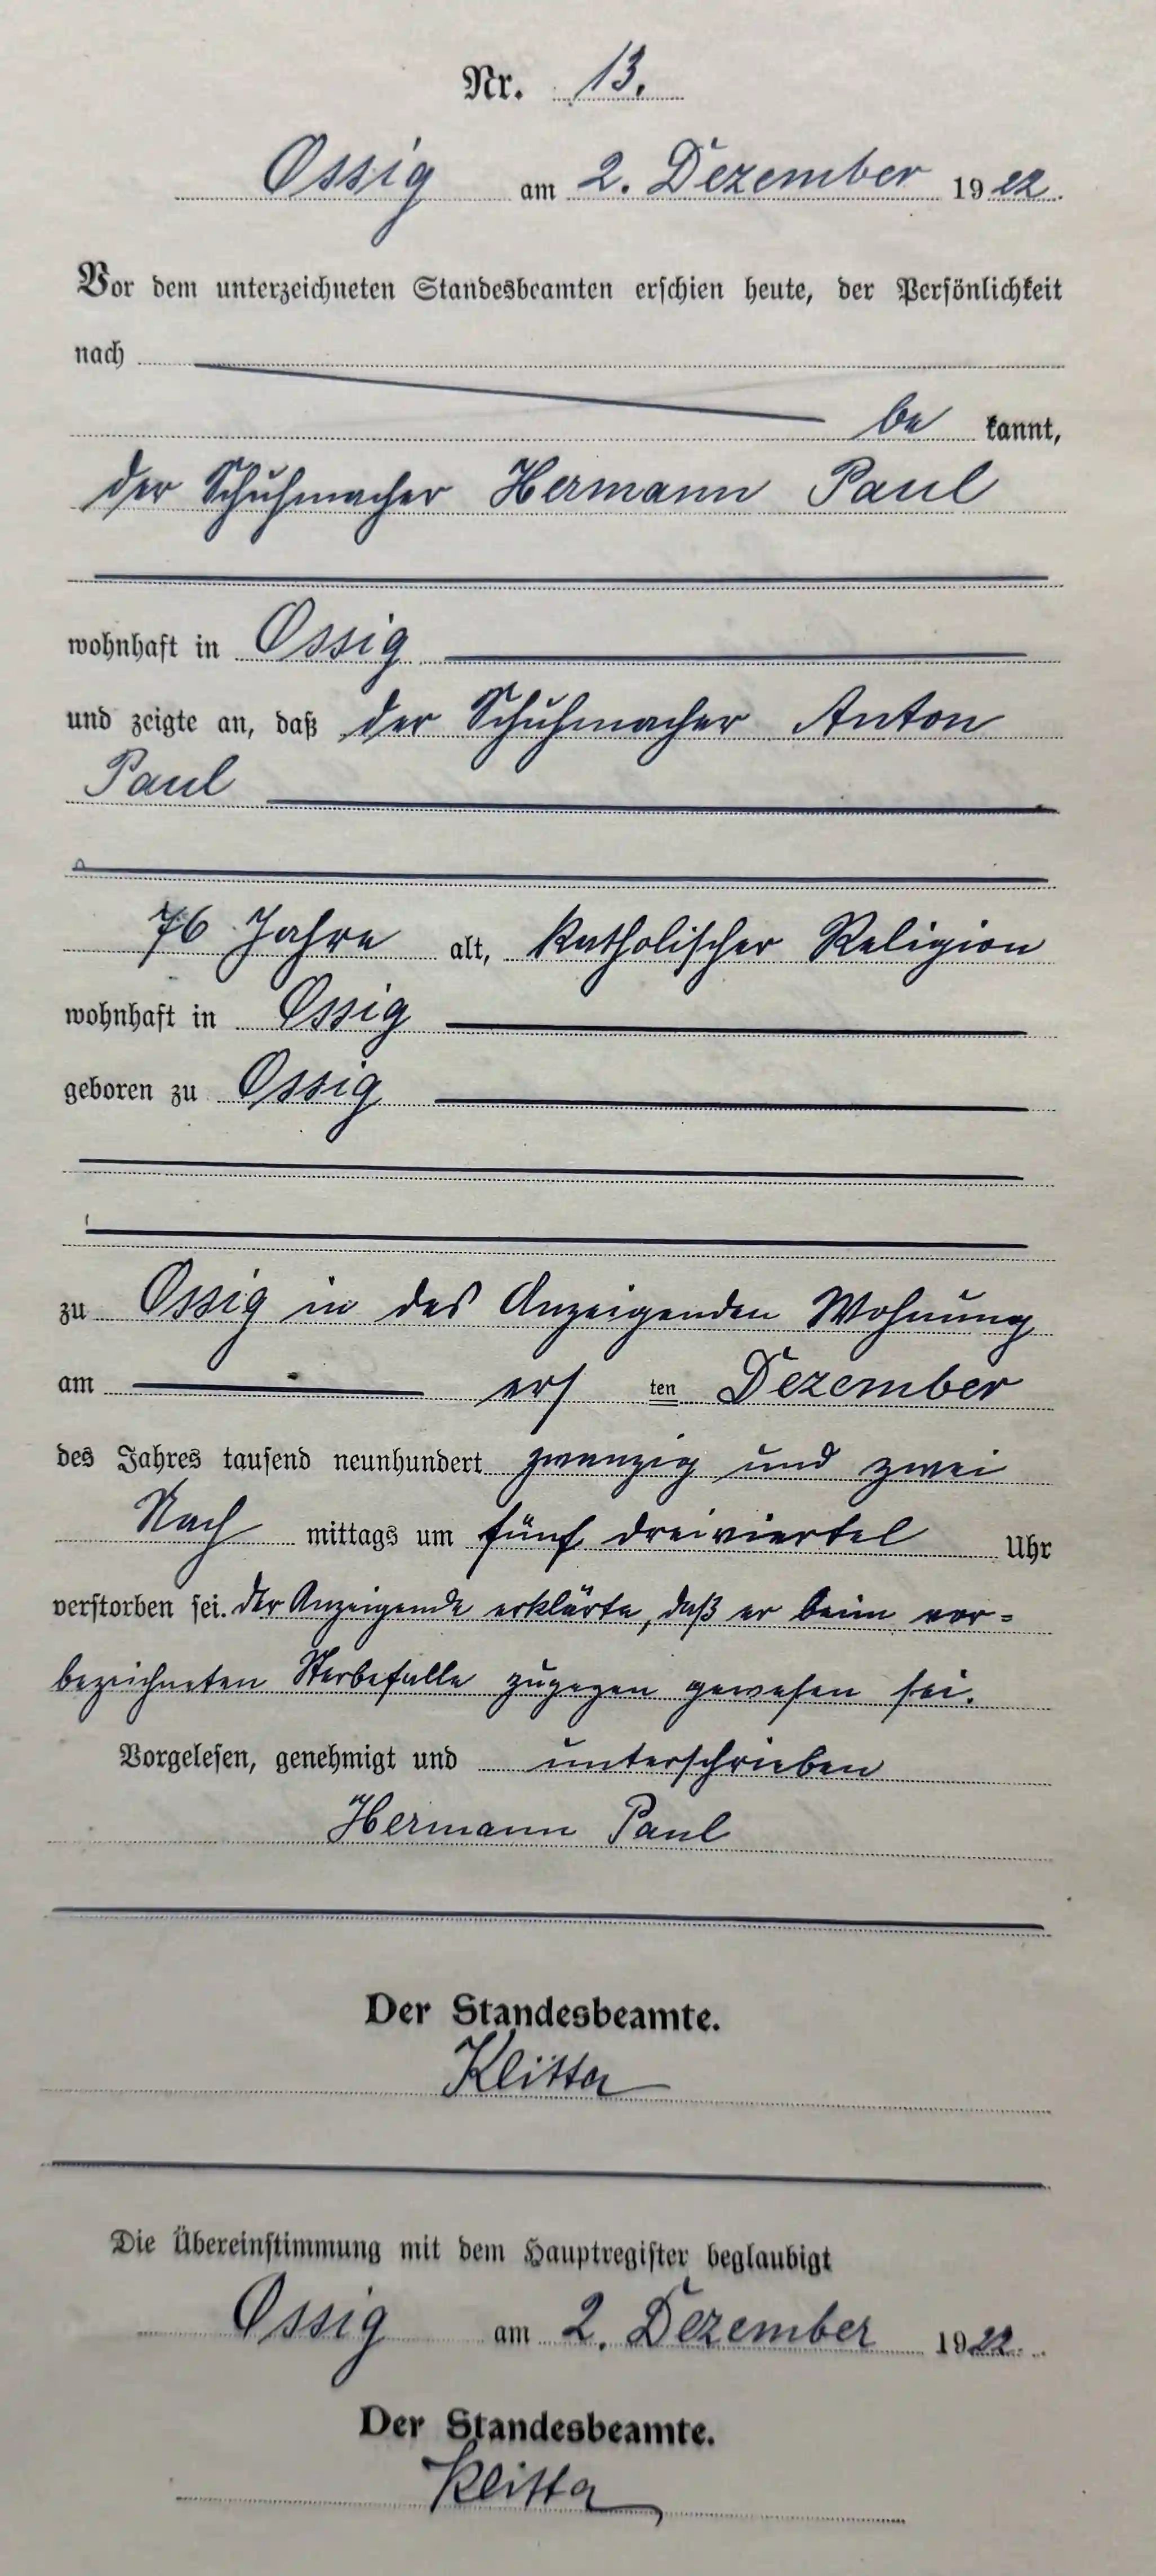 Nr. 13.
Ossig am 2. Dezember 1922.
Vor dem unterzeichneten Standesbeamten erschien heute, der Persönlichkeit
nach
be kannt,
der Schuhmacher Hermann Paul
wohnhaft in Ossig
und zeigte an, daß der Schuhmacher Anton
Paul
76 Jahre alt, katholischer Religion
wohnhaft in Ossig
geboren zu Ossig
zu Ossig in des Anzeigenden Wohnung
am ersten Dezember
des Jahres tausend neunhundert zwanzig und zwei
Nach mittags um fünf dreiviertel Uhr
verstorben sei. Der Anzeigende erklärte, daß er beim vor-
bezeichneten Sterbefalle zugegen gewesen sei.
Vorgelesen, genehmigt und unterschrieben
Hermann Paul
Der Standesbeamte.
Klitta
Die Übereinstimmung mit dem Hauptregister beglaubigt
Ossig am 2. Dezember 1922.
Der Standesbeamte.
Klitta